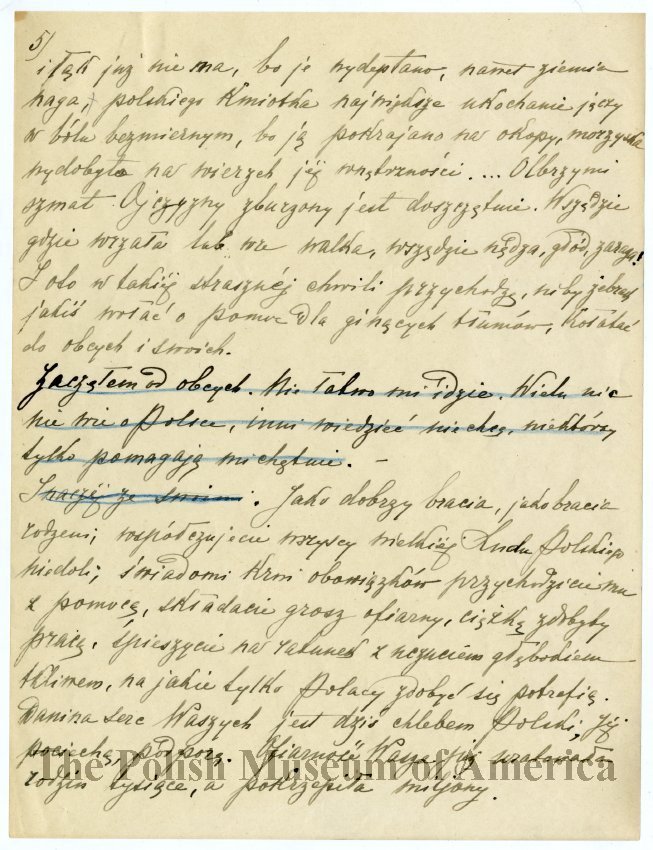 5)
i łąk już nie ma, bo je wydeptano, nawet ziemia
naga, polskiego kmiotka największe ukochanie jęczy
w bólu bezmiernym, bo ją pokrajano na okopy,
wydobyto na wierzch jéj wnętrzności.... Olbrzymi
szmat Ojczyzny zburzony jest doszczętnie. Wszędzie
gdzie wrzała lub wre walka, wszędzie nędza, głód, zaraza!
I oto w takiéj strasznéj chwili przychodzę, niby żebrak
jakiś wołać o pomoc dla ginących tłumów, kołatać
do obcych i swoich.
Zacząłem od obcych. Nie łatwo mi idzie. Wielu nic
nie wie o Polsce, inni wiedzieć nie chcą, niektórzy
tylko pomagają niechętnie. –
Inaczéj ze swoimi. Jako dobrzy bracia, jako bracia
rodzeni, współczujecie wszyscy wielkiéj Ludu Polskiego
niedoli, świadomi krwi obowiązków przychodzicie mu
z pomocą, składacie grosz ofiarny, ciężką zdobyty
pracą, śpieszycie na ratunek z uczuciem głębokiem
tkliwem, na jakie tylko Polacy zdobyć się potrafią.
Danina serc Waszych jest dziś chlebem Polski, jéj
pociechą, podporą. Ofiarność Wasza już uratowała
rodzin tysiące, a pokrzepiła miljony.
The Polish Museum of America